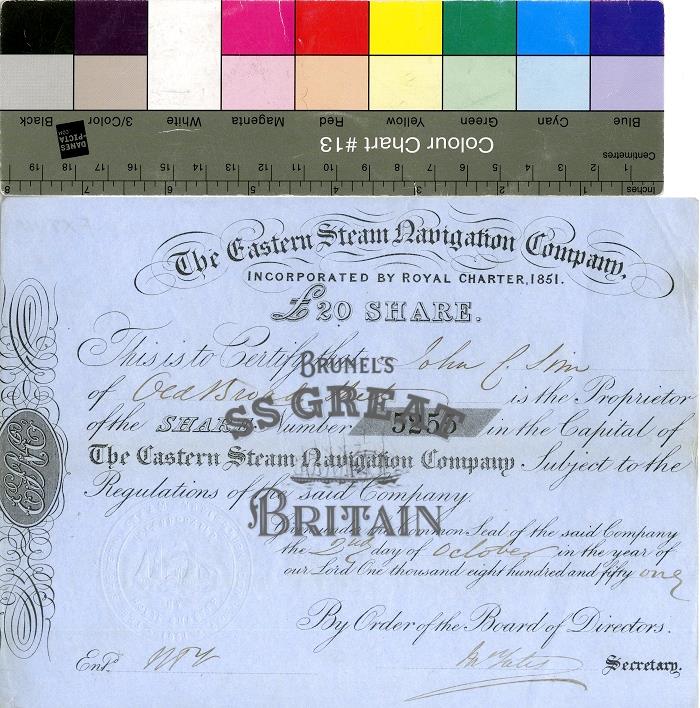 Black 3/Color White Magenta Red Yellow Green Cyan Blue
DANES
-PICTA
.COM
Colour Chart #13
Centimetres
19 18 17 16 15 14 13 12 11 10 9 8 7 6 5 4 3 2 1
8 7 6 5 4 3 2 1 Inches
The Eastern Steam Navigation Company,
INCORPORATED BY ROYAL CHARTER, 1851.
£20 SHARE.
This is to Certify that John C. Sim
of Old Broad Street is the Proprietor
of the SHARE Number 5255 in the Capital of
The Eastern Steam Navigation Company Subject to the
Regulations of the said Company.
under the Common Seal of the said Company
the 2nd day of October in the year of
our Lord One thousand eight hundred and fifty one
By Order of the Board of Directors.
Entd. Secretary.
BRUNEL'S
SS GREAT
BRITAIN